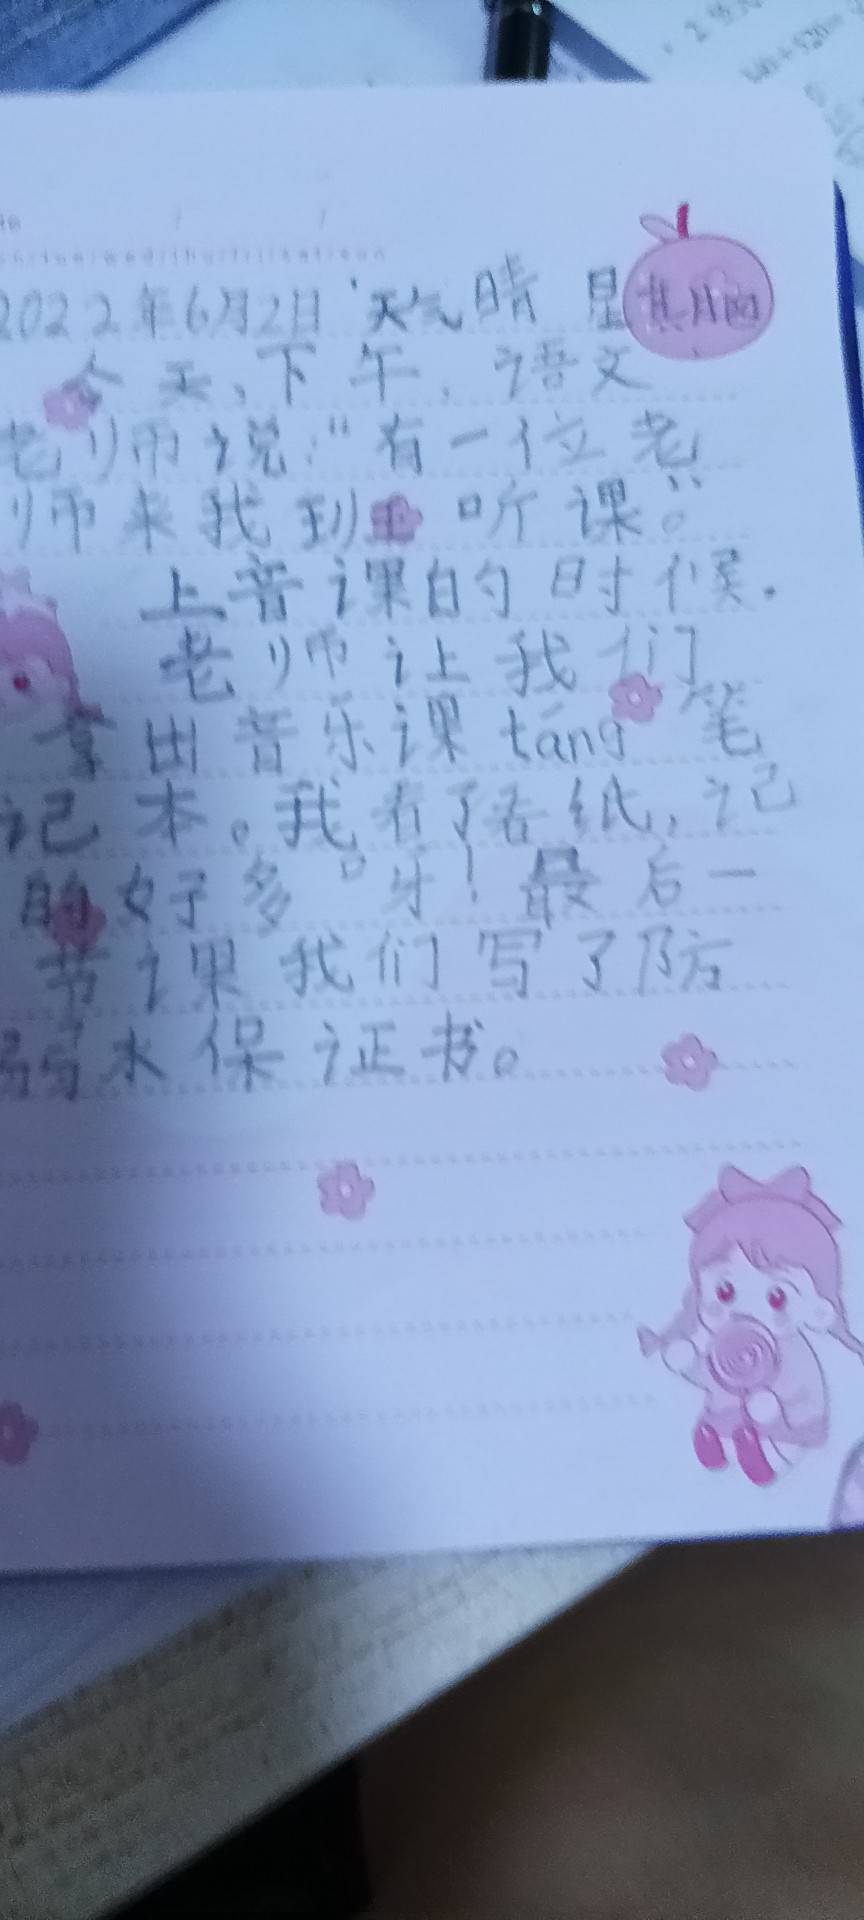 2022年6月2日 天气晴 星期四
今天,下午,语文
老师说:“有一位老
师来我到 听课”。
上音课的时候.
老师让我们
拿出音乐课táng笔
记本。我看了看纸,记
的好多呀!最后一
节课我们写了防
溺水保证书。